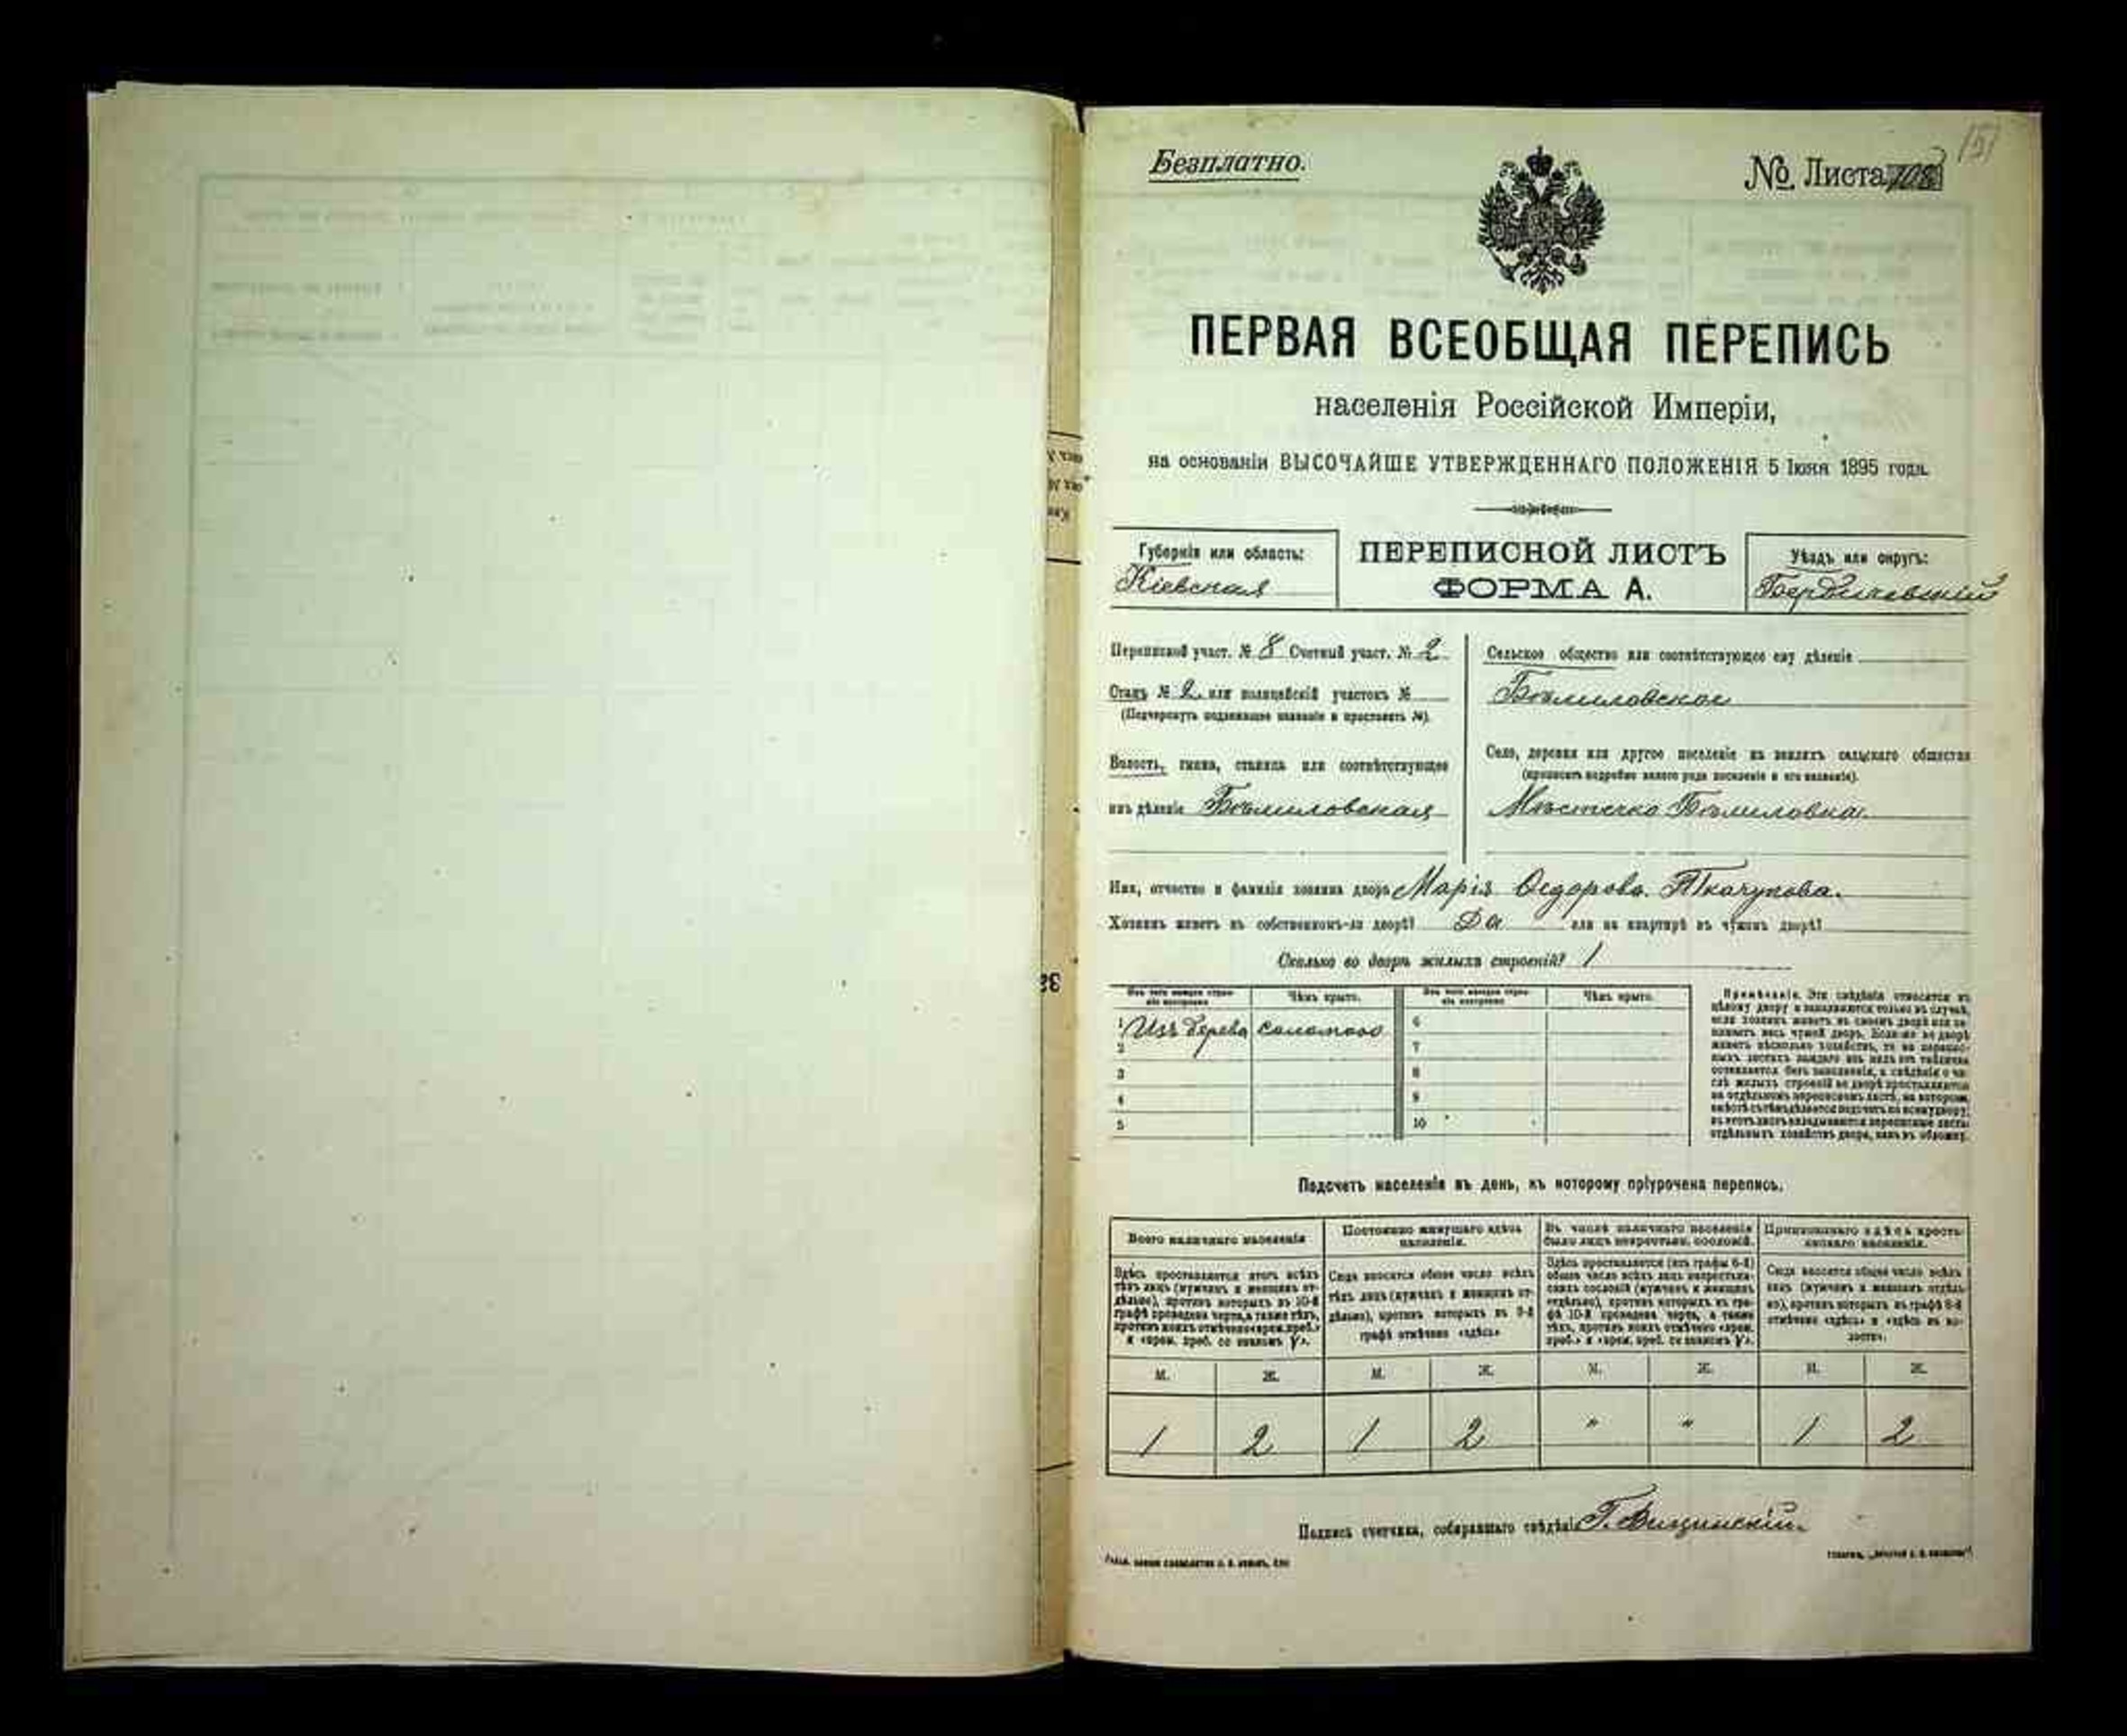 151
Безплатно.
№ Листа 108
ПЕРВАЯ ВСЕОБЩАЯ ПЕРЕПИСЬ
населенія Россійской Имперіи,
на основаніи ВЫСОЧАЙШЕ УТВЕРЖДЕННАГО ПОЛОЖЕНІЯ 5 Іюня 1895 года.
Губернія или область:
Кіевская
ПЕРЕПИСНОЙ ЛИСТЪ
ФОРМА А.
Уѣздъ или округъ:
Бердичевскій
Переписной участ. № 8 Счетный участ. № 2
Станъ № 2 или полицейскій участокъ №
(Подчеркнуть подлежащее названіе и проставить №).
Волость, гмина, станица или соотвѣтствующее
имъ дѣленіе Бѣлиловская
Сельское общество или соотвѣтствующее ему дѣленіе
Бѣлиловское
Село, деревня или другое поселеніе на земляхъ сельскаго общества
(прописать подробно какого рода поселеніе и его названіе).
Мѣстечко Бѣлиловка.
Имя, отчество и фамилія хозяина двора Марія Ѳедорова Ткачукова.
Хозяинъ живетъ въ собственномъ-ли дворѣ? Да или на квартирѣ въ чужомъ дворѣ?
Сколько во дворѣ жилыхъ строеній? 1
Изъ чего каждое строеніе построено
Чѣмъ крыто.
Изъ чего каждое строеніе построено
Чѣмъ крыто.
1 Изъ дерева соломою 6
2 7
3 8
4 9
5 10
Примѣчаніе. Эти свѣдѣнія относятся къ
цѣлому двору и заполняются только въ случаѣ,
если хозяинъ живетъ въ своемъ дворѣ или за-
нимаетъ весь чужой дворъ. Если-же во дворѣ
живетъ нѣсколько хозяйствъ, то на перепис-
ныхъ листахъ каждаго изъ нихъ эта табличка
оставляется безъ заполненія, а свѣдѣнія о чи-
слѣ жилыхъ строеній во дворѣ проставляются
на отдѣльномъ переписномъ листѣ, на которомъ
вмѣстѣ съ тѣмъ дѣлается подсчетъ по всему двору;
въ этотъ листъ вкладываются переписные листы
отдѣльныхъ хозяйствъ двора, какъ въ обложку.
Подсчетъ населенія въ день, къ которому пріурочена перепись.
Всего наличнаго населенія
Постоянно живущаго здѣсь населенія.
Въ числѣ наличнаго населенія было лицъ некрестьян. сословій.
Приписаннаго здѣсь крестьянскаго населенія.
Здѣсь проставляется итогъ всѣхъ
тѣхъ лицъ (мужчинъ и женщинъ от-
дѣльно), противъ которыхъ въ 10-й
графѣ проведена черта, а также тѣхъ,
противъ коихъ отмѣчено «врем. преб.»
и «врем. преб. со знакомъ V».
Сюда вносится общее число всѣхъ
тѣхъ лицъ (мужчинъ и женщинъ от-
дѣльно), противъ которыхъ въ 9-й
графѣ отмѣчено «здѣсь»
Здѣсь проставляется (изъ графы 6-й)
общее число всѣхъ лицъ некрестьян-
скихъ сословій (мужчинъ и женщинъ
отдѣльно), противъ которыхъ въ гра-
фѣ 10-й проведена черта, а также
тѣхъ, противъ коихъ отмѣчено «врем.
преб.» и «врем. преб. со знакомъ V».
Сюда вносится общее число всѣхъ
лицъ (мужчинъ и женщинъ отдѣль-
но), противъ которыхъ въ графѣ 8-й
отмѣчено «здѣсь» и «здѣсь въ во-
лости».
М. Ж. М. Ж. М. Ж. М. Ж.
1 2 1 2 " " 1 2
Подпись счетчика, собиравшаго свѣдѣнія